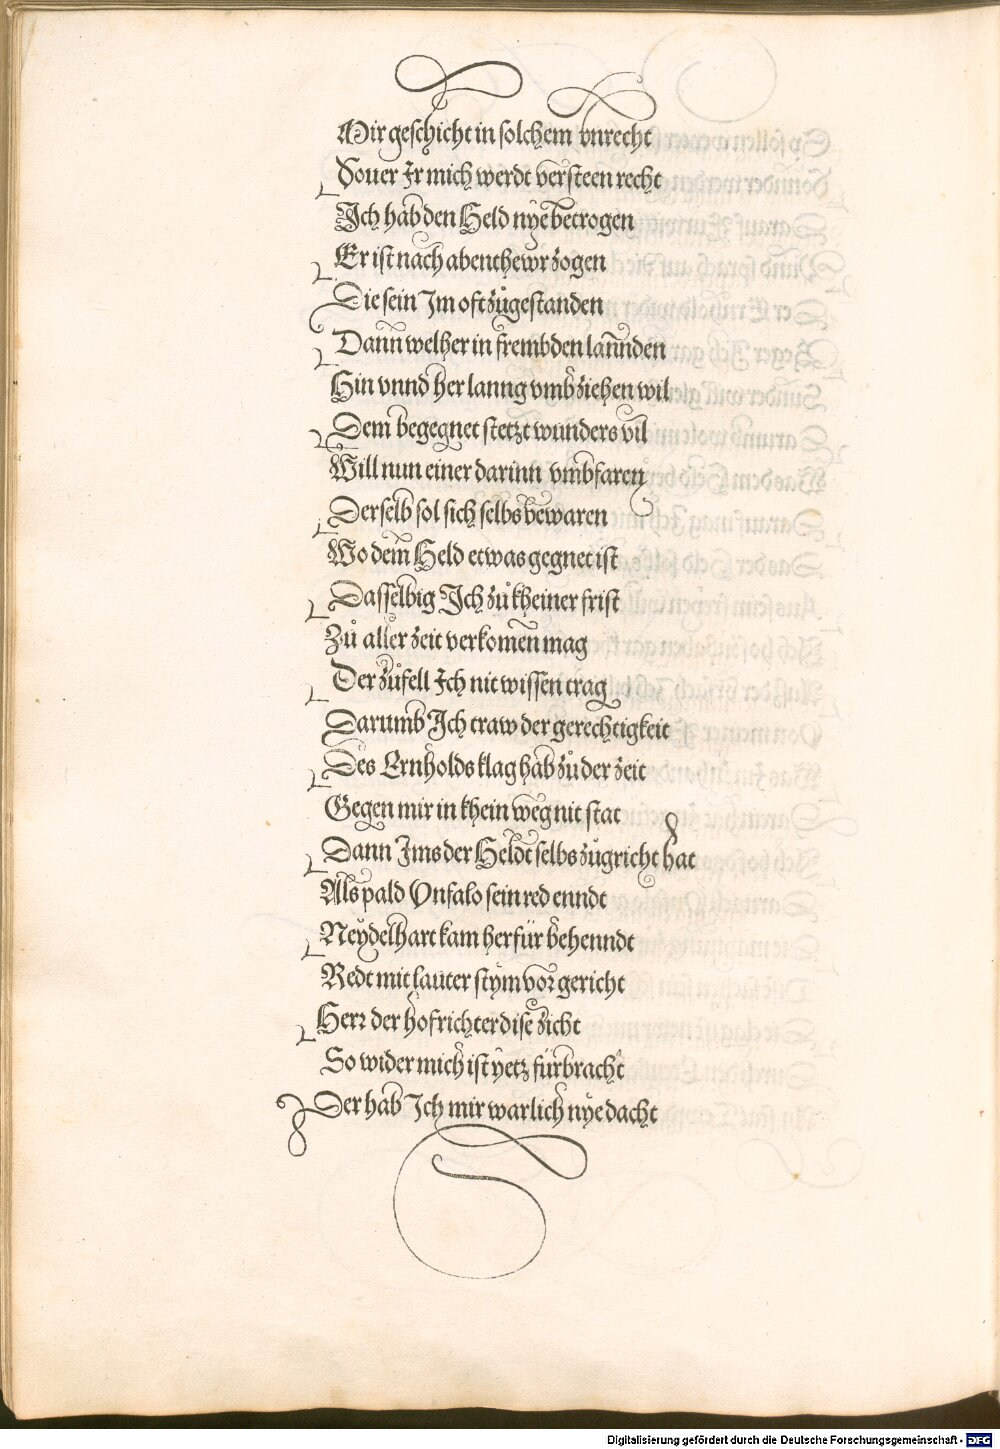 Mir geschicht in solchem vnrecht
Souer Ir mich werdt versteen recht
Ich hab den Held nye betrogen
Er ist nach abenthewr zogen
Die sein Im oft zůgestanden
Dann welher in frembden lannden
Hin vnnd her lanng vmbziehen wil
Dem begegnet stetzt wunders vil
Will nun einer darinn vmbfaren
Derselb sol sich selbs bewaren
Wo dem Held etwas gegnet ist
Dasselbig Ich zů kheiner frist
Zů aller zeit verkomen mag
Der zůfell Ich nit wissen trag
Darumb Ich traw der gerechtigkeit
Des Ernholds klag hab zů der zeit
Gegen mir in khein weg nit stat
Dann Ims der Heldt selbs zůgricht hat
Als pald Vnfalo sein red enndt
Neydelhart kam herfür behenndt
Redt mit lauter stym vor gericht
Herr der hofrichter dise zicht
So wider mich ist yetz fürbracht
Der hab Ich mir warlich nye dacht
Digitalisierung gefördert durch die Deutsche Forschungsgemeinschaft - DFG